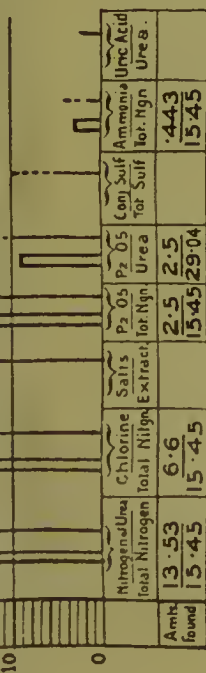 10
0
Nitrogen of Urea
Total Nitrogen
Chlorine
Total Nitgn
Salts
Extract.
P2 O5
Tot. Ngn
P2 O5
Urea
Conj Sulf
Tot Sulf
Ammonia
Tot. Ngn
Uric Acid
Urea.
Amts. found
13.53
15.45
6.6
15.45
2.5
15.45
2.5
29.04
.443
15.45